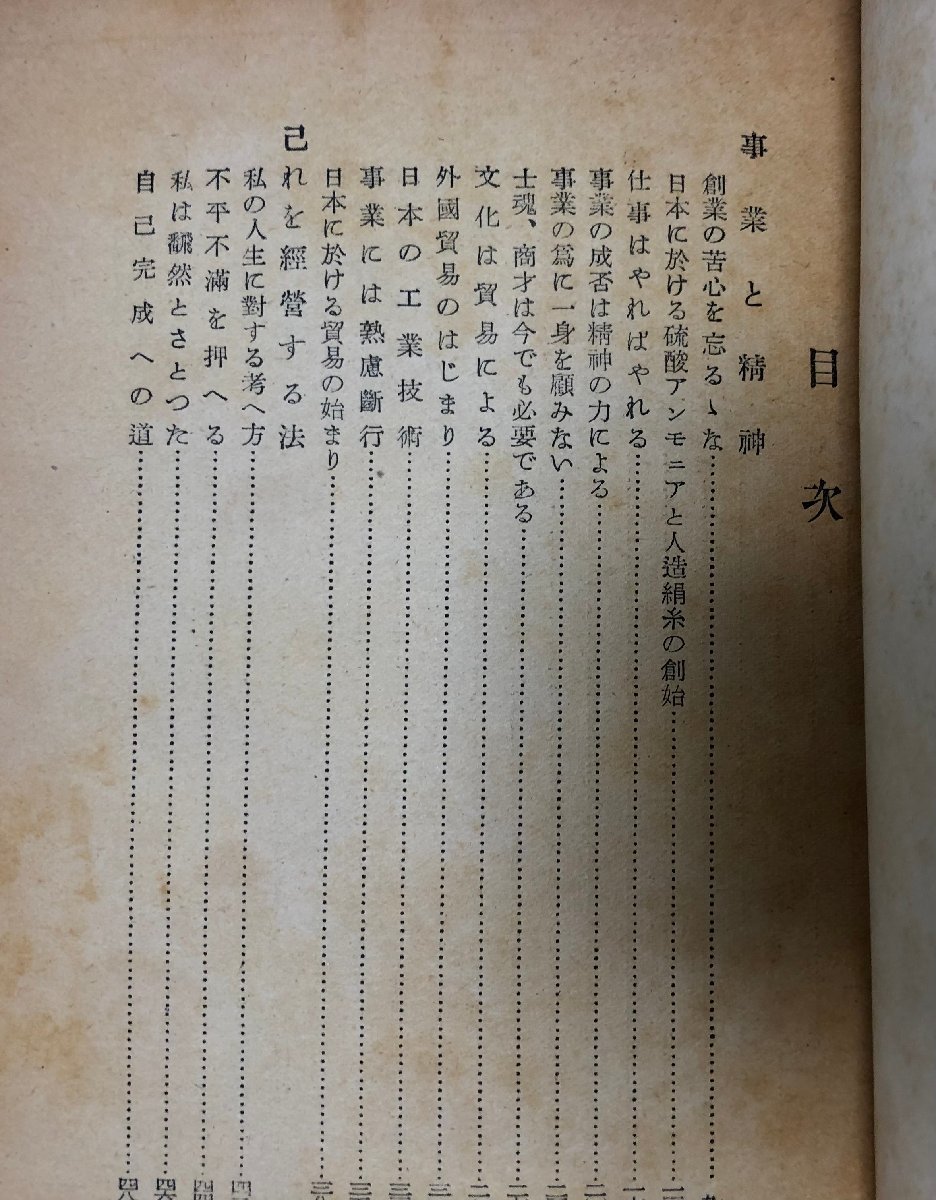 目次
事業と精神
創業の苦心を忘るゝな
日本に於ける硫酸アンモニアと人造絹糸の創始
仕事はやればやれる
事業の成否は精神の力による
事業の爲に一身を顧みない
士魂、商才は今でも必要である
文化は貿易による
外國貿易のはじまり
日本の工業技術
事業には熟慮斷行
日本に於ける貿易の始まり
己れを經營する法
私の人生に對する考へ方
不平不滿を押へる……四四
私は飜然とさとつた……四六
自己完成への道……四八